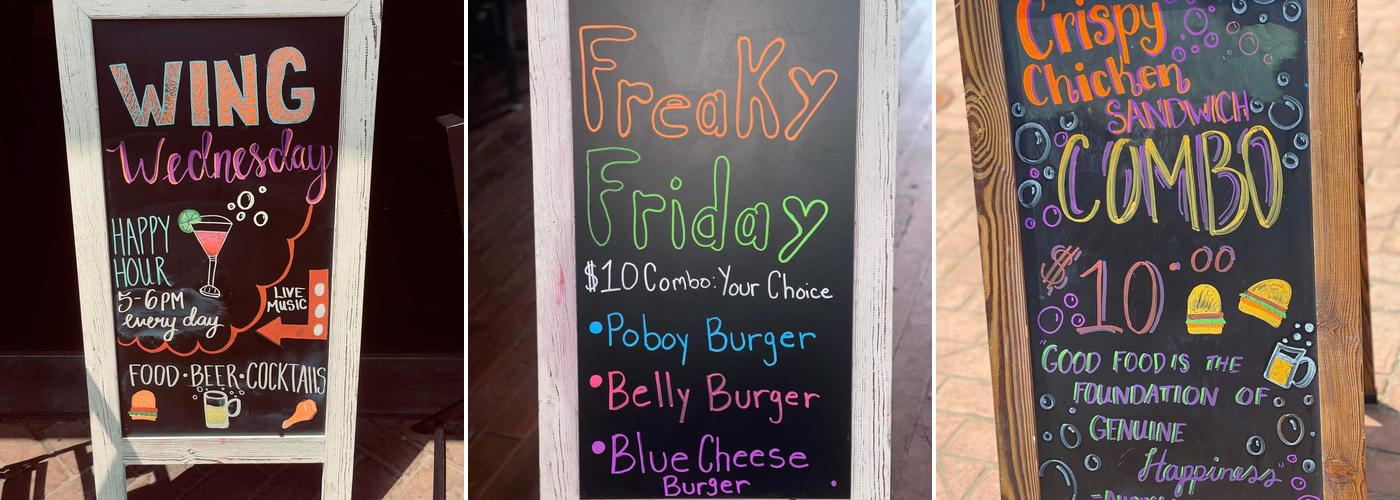 WING
Wednesday
HAPPY
HOUR
5-6PM
every day
LIVE
MUSIC
FOOD • BEER • COCKTAILS
Freaky
Friday
$10 Combo: Your Choice
• Poboy Burger
• Belly Burger
• Blue Cheese
Burger
Crispy
Chicken
SANDWICH
COMBO
$10.00
"GOOD FOOD IS THE
FOUNDATION OF
GENUINE
Happiness"